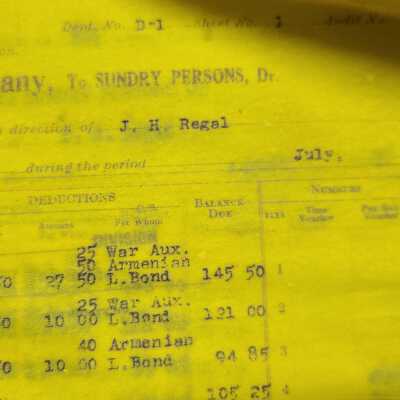 Dept. No. D-1 Sheet No. 1 Audit No.
on.
any, To SUNDRY PERSONS, Dr.
direction of J. H. Regal
during the period July,
DEDUCTIONS BALANCE DUE NUMBERS
Amount Per Whom Time Voucher
DIVISION
25 War Aux.
50 Armenian
0 27 50 L.Bond 145 50 1
25 War Aux.
0 10 00 L.Bond 121 00 2
40 Armenian
0 10 00 L.Bond 94 85 3
105 25 4